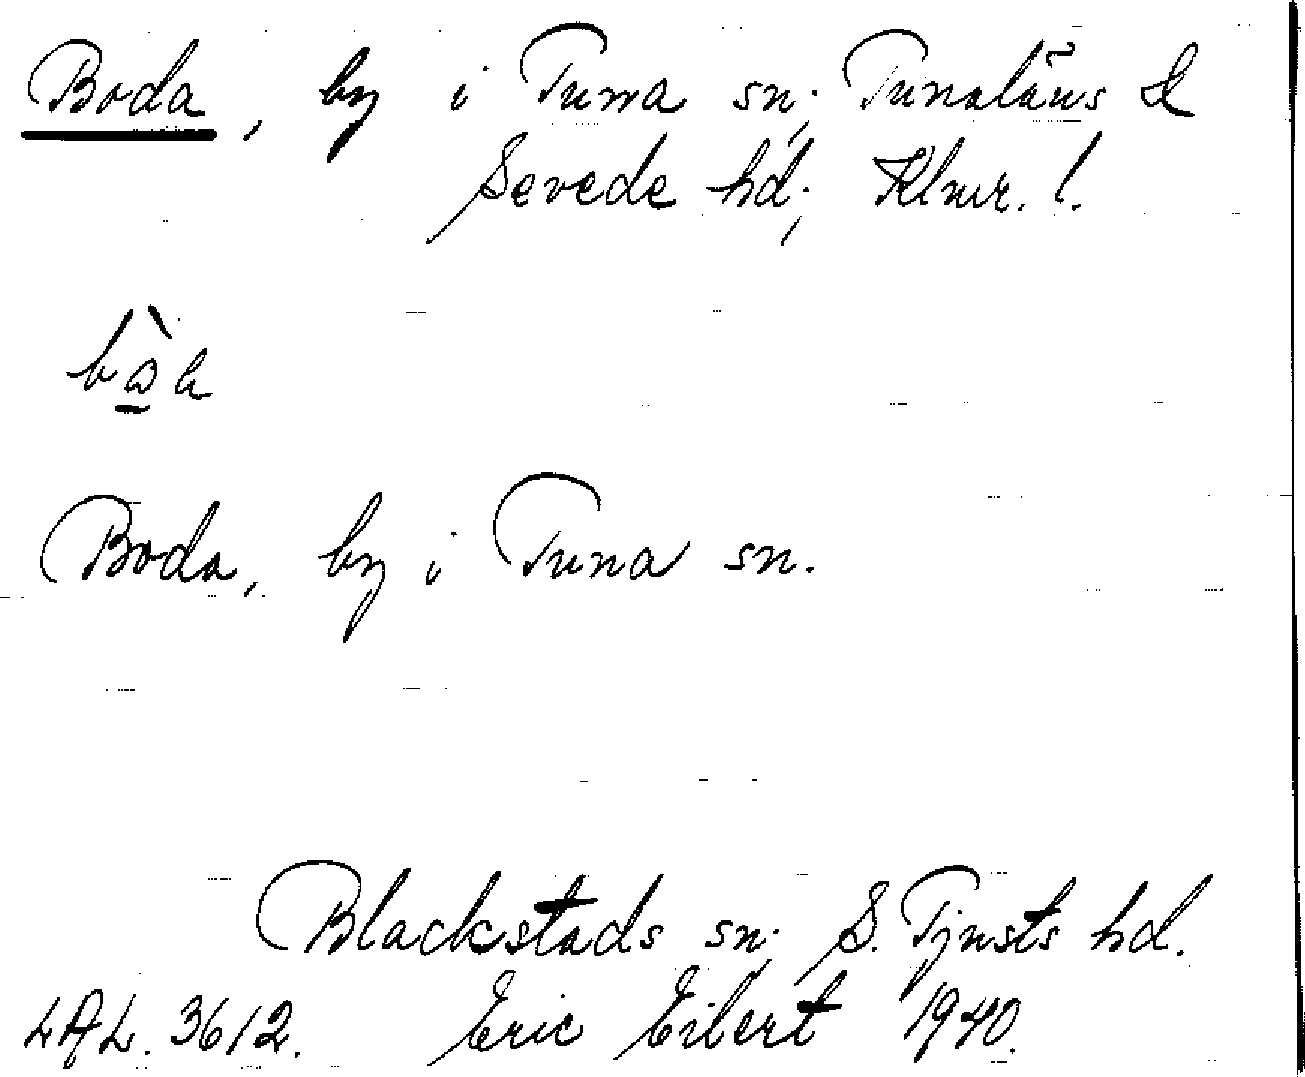 Boda, by i Tuna sn; Tunaläns &
Sevede hd; Klmr. l.
Boda, by i Tuna sn.
Blackstads sn; S. Tjusts hd.
LAL. 3612. Eric Eilert 1940.